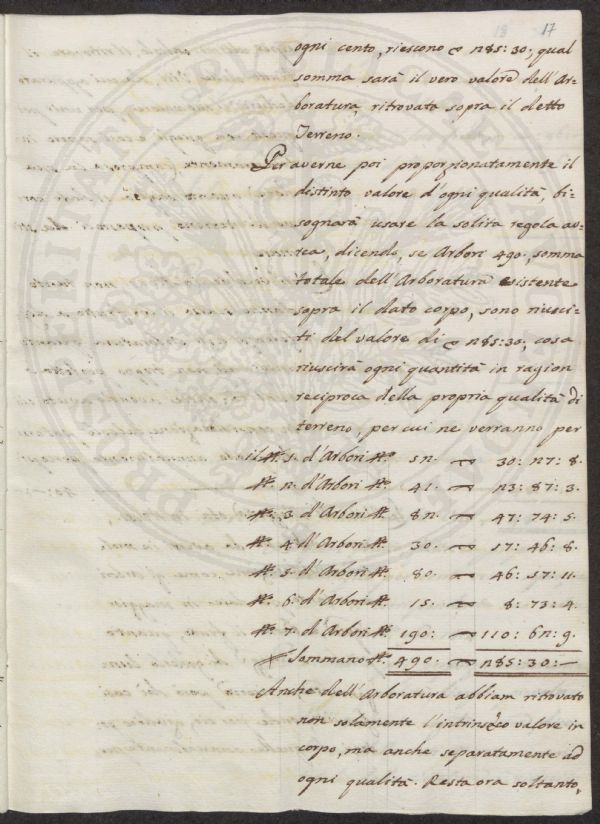 18 17
ogni cento, riescono 285:30:, qual
somma sarà il vero valore dell'Ar=
boratura, ritrovata sopra il detto
Terreno.
Per averne poi proporzionatamente il
distinto valore d'ogni qualità, bi=
sognarà usare la solita regola au=
rea, dicendo, se Arbori 490., somma
totale dell'Arboratura esistente
sopra il dato corpo, sono riusci=
ti del valore di 285:30, cosa
riuscirà ogni quantità in ragion
reciproca della propria qualità di
terreno, per cui ne verranno per
il N.º 1. d'Arbori N.º 52. 30: 27: 8.
N.º 2. d'Arbori N.º 41. 23: 87: 3.
N.º 3. d'Arbori N.º 82. 47: 74: 5.
N.º 4. d'Arbori N.º 30. 17: 46: 8.
N.º 5. d'Arbori N.º 80. 46: 57: 11.
N.º 6. d'Arbori N.º 15. 8: 73: 4.
N.º 7. d'Arbori N.º 190: 110: 62: 9.
Sommano N.º 490. 285: 30: —
Anche dell'Arboratura abbiam ritrovato
non solamente l'intrinseco valore in
corpo, ma anche separatamente ad
ogni qualità. Resta ora soltanto,